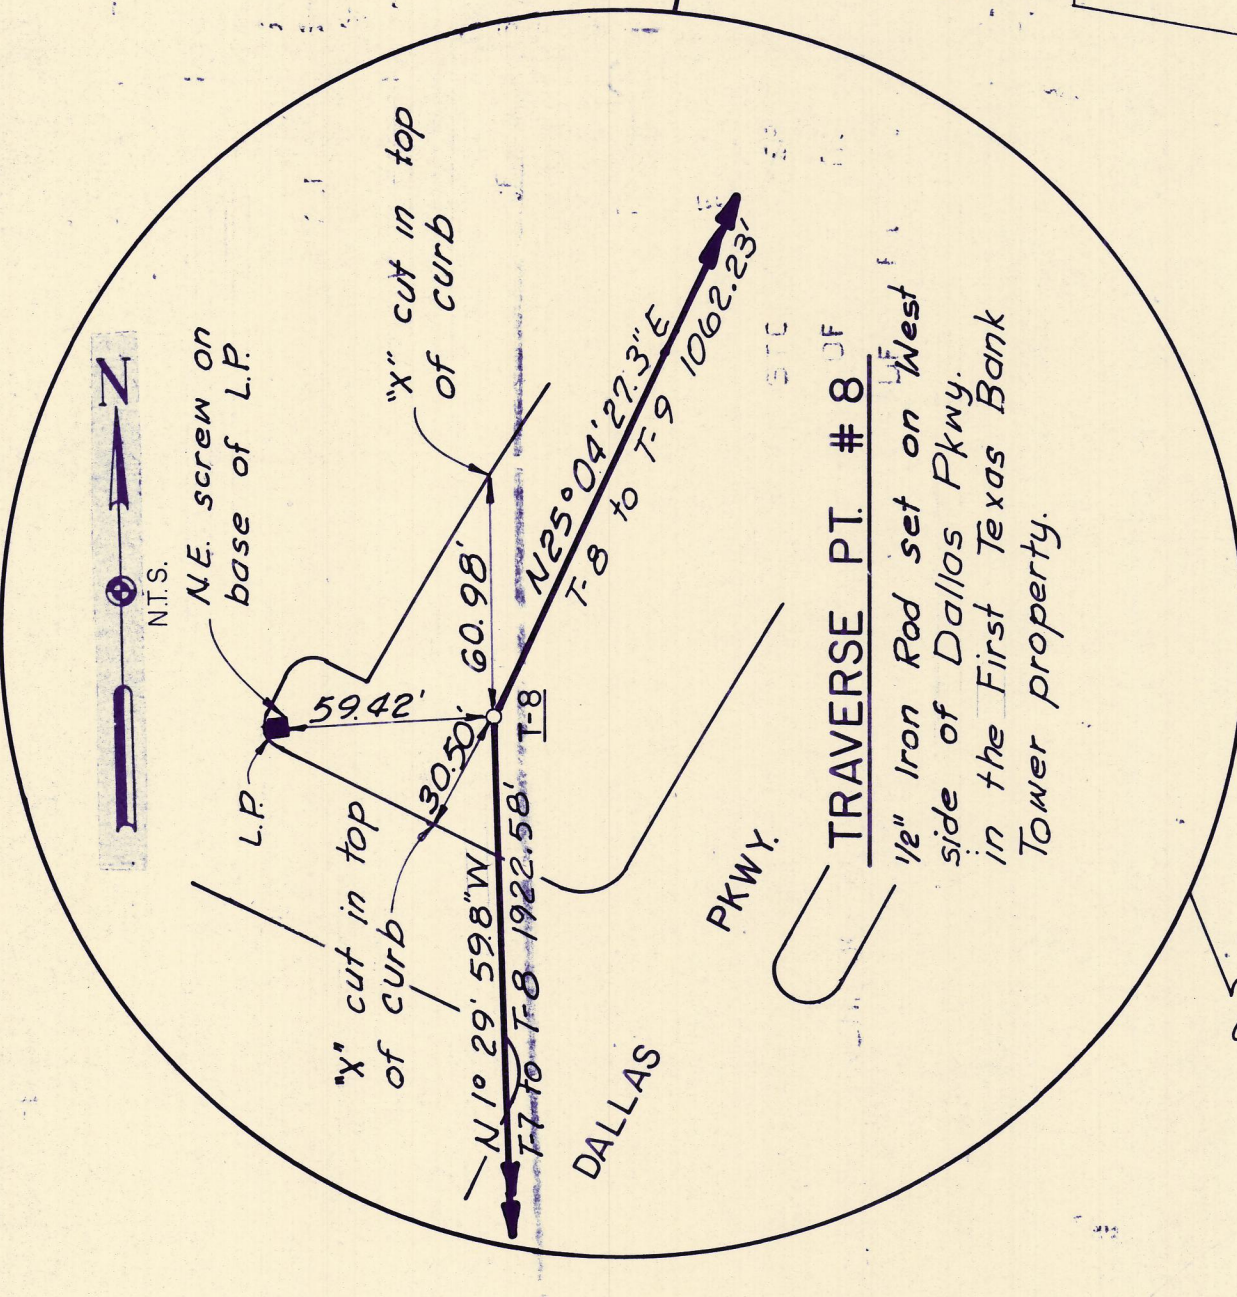 N
N.T.S.
N.E. screw on
base of L.P.
"X" cut in top
of curb
L.P.
59.42'
60.98'
30.50'
T-8
N25°04'27.3"E
T-8 to T-9 1062.23'
"X" cut in top
of curb
N 1° 29' 59.8" W
T-7 to T-8 1922.58'
DALLAS PKWY.
TRAVERSE PT. # 8
1/2" Iron Rod set on West
side of Dallas Pkwy.
in the First Texas Bank
Tower property.